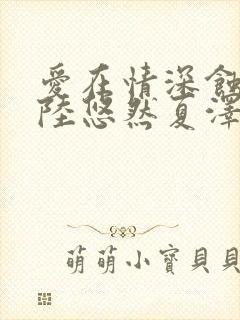 愛在情深蝕
陸悠然夏澤
萌萌小寶貝貝